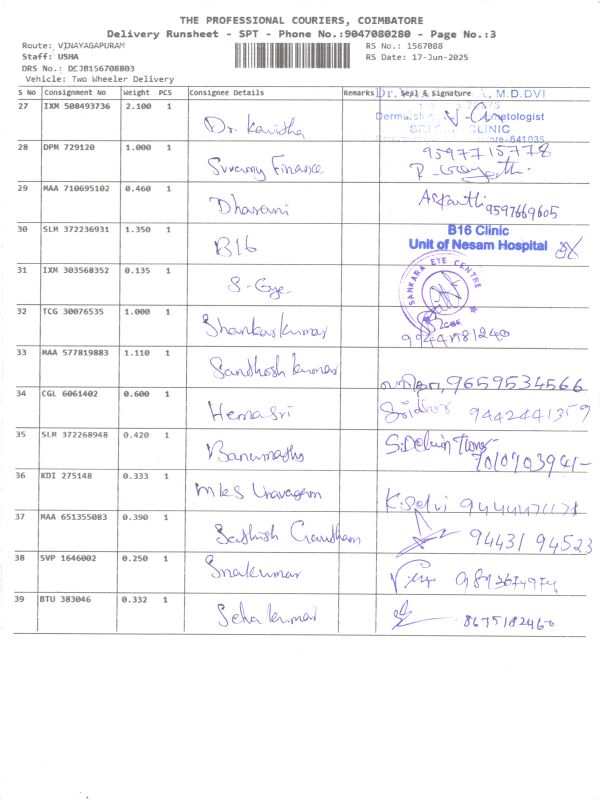 THE PROFESSIONAL COURIERS, COIMBATORE
Delivery Runsheet - SPT - Phone No.:9047080280 - Page No.:3
Route: VINAYAGAPURAM RS No.: 1567088
Staff: USHA RS Date: 17-Jun-2025
DRS No.: DCJB156708803
Vehicle: Two Wheeler Delivery
S No Consignment No Weight PCS Consignee Details Remarks Seal & Signature
Dr. M.D.DVL
27 IXM 508493736 2.100 1 Dr. Kavitha
CLINIC
641035
28 DPM 729120 1.000 1 Swamy Finance 9597715778
29 MAA 710695102 0.460 1 Dharani 9597669605
30 SLM 372236931 1.350 1 B16 B16 Clinic
Unit of Nesam Hospital
31 IXM 303568352 0.135 1 S-Eye SANKARA EYE CENTRE
32 TCG 30076535 1.000 1 Shankar kumar
33 MAA 577819883 1.110 1 Santhosh kumar 9659534566
34 CGL 6061402 0.600 1 Hemasri 9442441359
35 SLM 372268948 0.420 1 Banumathy
36 KDI 275148 0.333 1 MKS Unavagam K.Selvi
37 MAA 651355083 0.390 1 Sathish Gautham 94431 94523
38 SVP 1646002 0.250 1 Sivakumar
39 BTU 383046 0.332 1 Selvakumar 8675182460